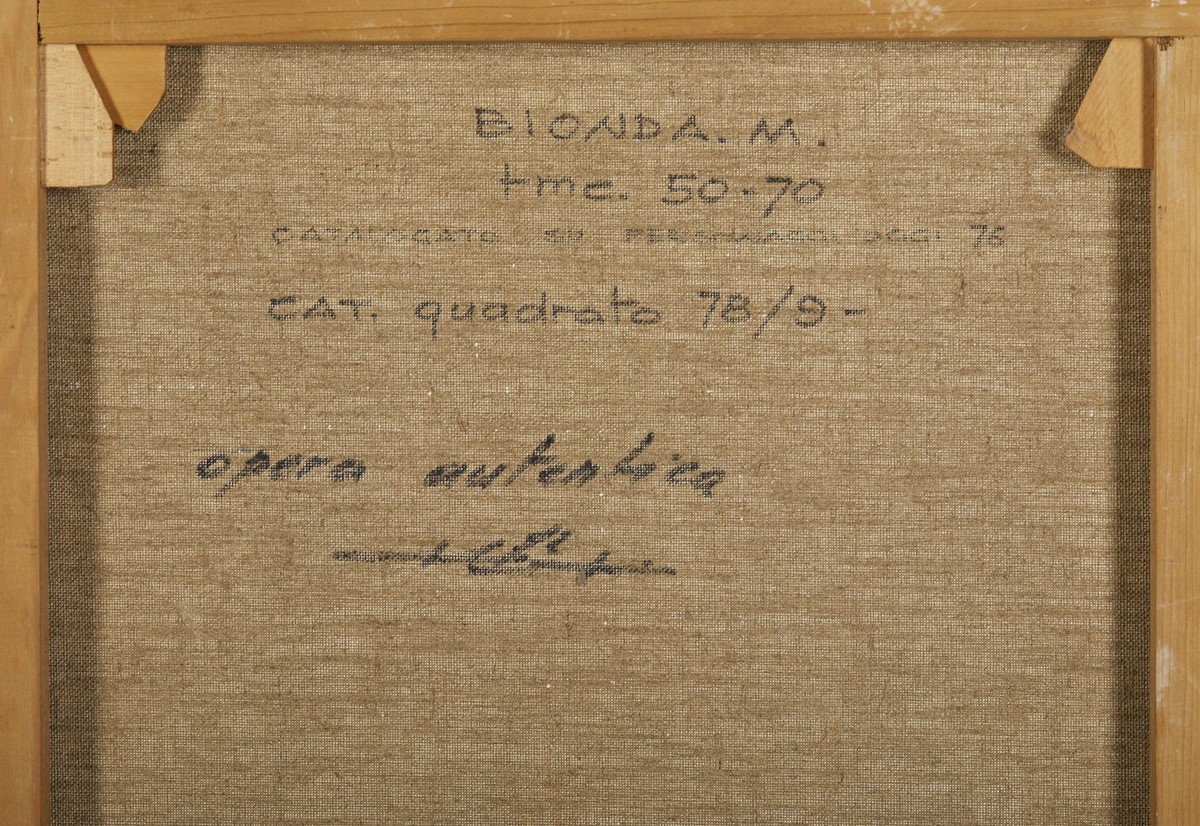 BIONDA. M.
tmc. 50-70
CATALOGATO SU PERSONAGGI OGGI 76
CAT. quadrato 78/9-
opera autentica